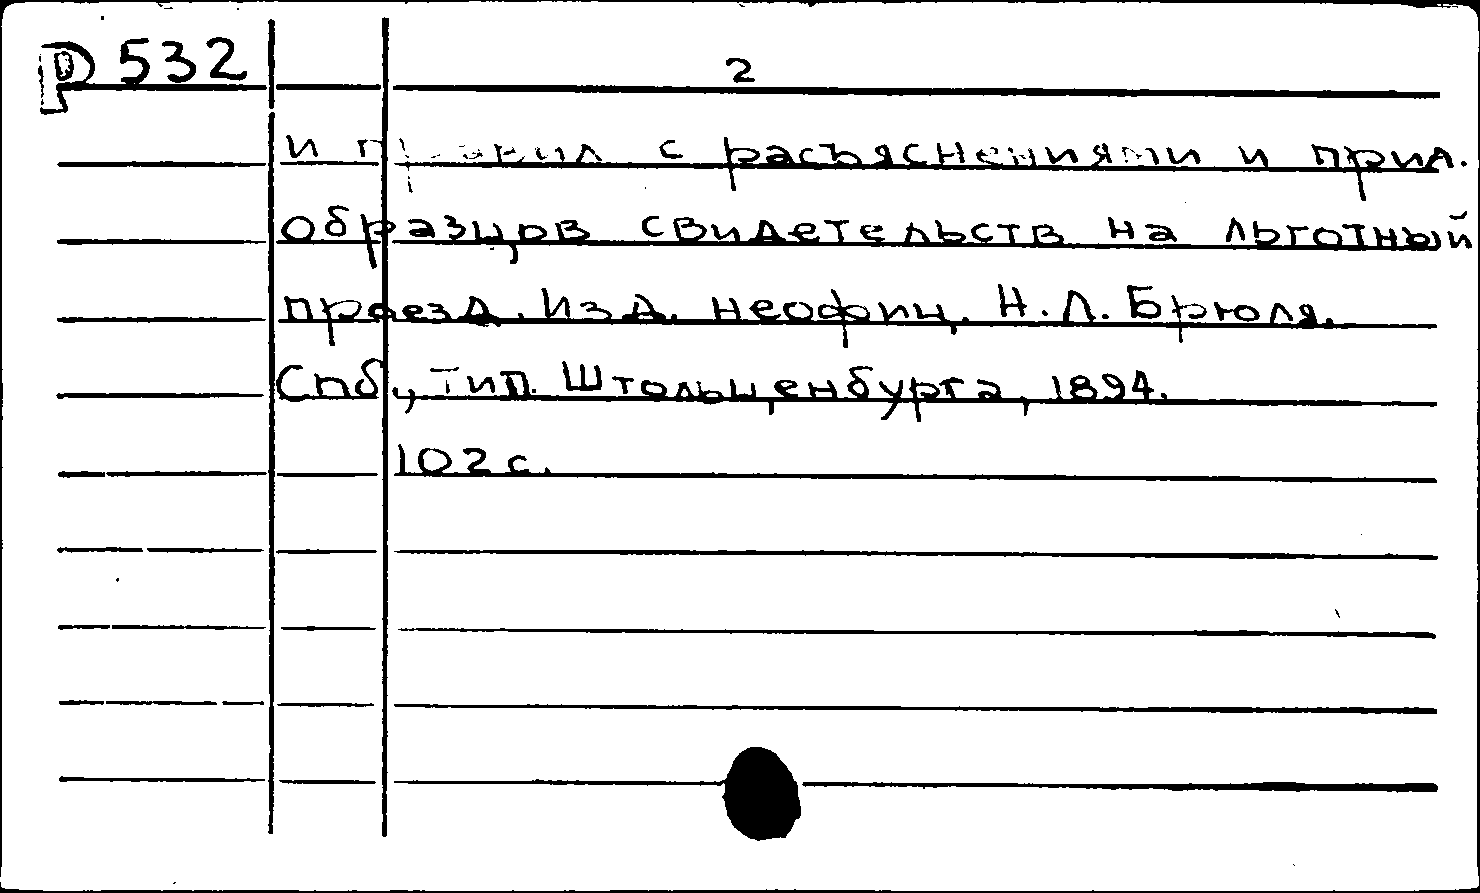 Р 532
2
и правил с расъяснениями и прил.
образцов свидетельств на льготный
проезд. Изд. неофиц. Н.Л. Брюля.
Спб., тип. Штольценбурга, 1894.
102 с.